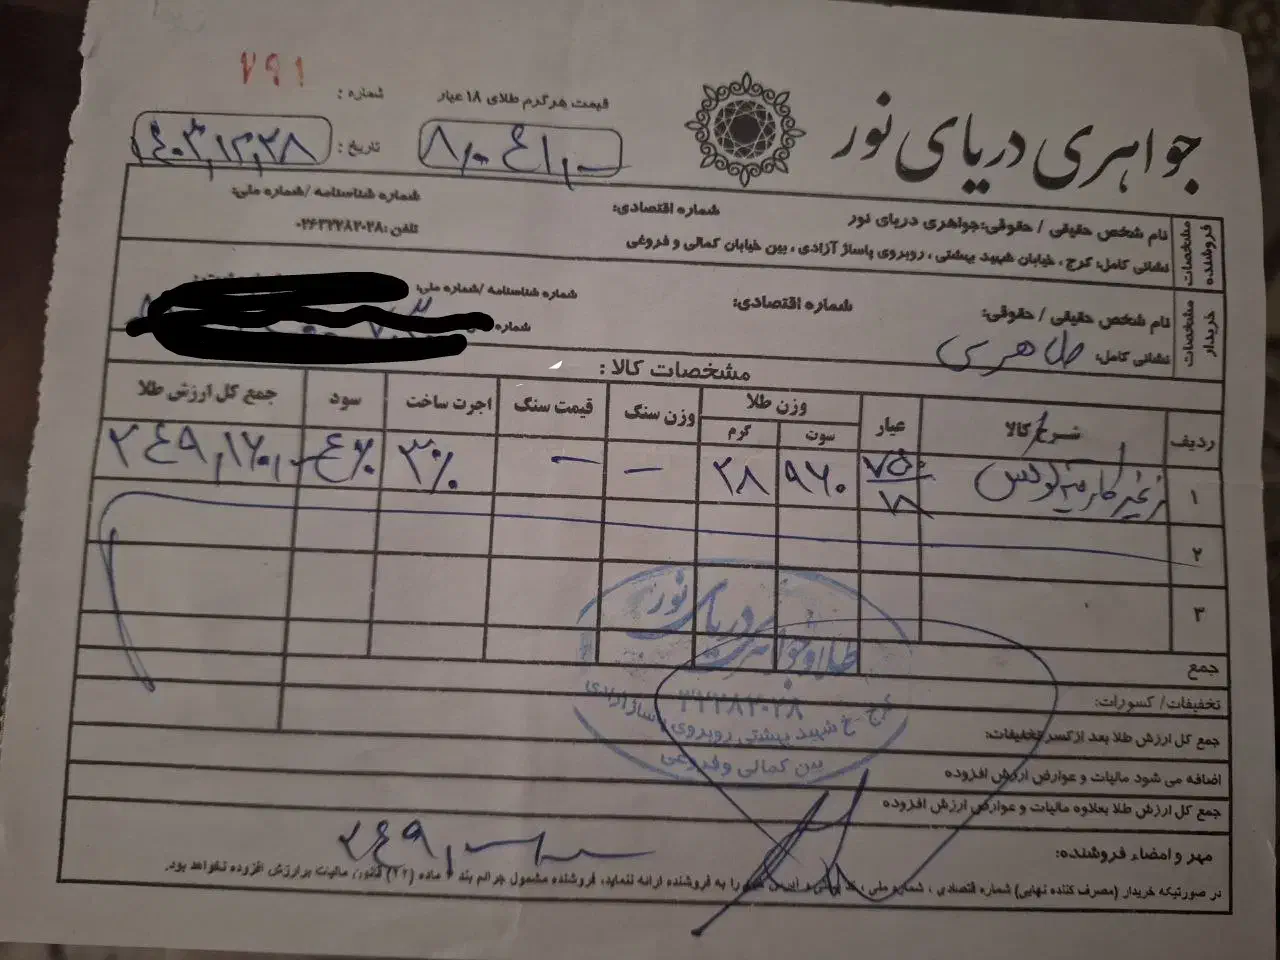 جواهری دریای نور
قیمت هر گرم طلای ۱۸ عیار
شماره : ۷۹۱
تاریخ : ۱۴۰۳,۱۲,۲۸
مشخصات فروشنده
نام شخص حقیقی / حقوقی: جواهری دریای نور شماره اقتصادی: شماره شناسنامه /شماره ملی:
نشانی کامل: کرج ، خیابان شهید بهشتی ، روبروی پاساژ آزادی ، بین خیابان کمالی و فروغی تلفن :
مشخصات خریدار
نام شخص حقیقی / حقوقی: شماره اقتصادی: شماره شناسنامه /شماره ملی:
نشانی کامل: طاهری شماره
مشخصات کالا :
ردیف شرح کالا عیار وزن طلا وزن سنگ قیمت سنگ اجرت ساخت سود جمع کل ارزش طلا
سوت گرم
۱ زنجیر کارتیه لوکس ۷۵۰/۱۸ ۹۶۰ ۲۸ – – ۳٪ ۴٪
۲
۳
جمع
تخفیفات/ کسورات:
جمع کل ارزش طلا بعد از کسر تخفیفات:
اضافه می شود مالیات و عوارض ارزش افزوده
جمع کل ارزش طلا بعلاوه مالیات و عوارض ارزش افزوده
مهر و امضاء فروشنده:
در صورتیکه خریدار (مصرف کننده نهایی) شماره اقتصادی ، شماره ملی ، و آدرس را به فروشنده ارائه ننماید، فروشنده مشمول جرائم بند ماده (۲۲) قانون مالیات بر ارزش افزوده نخواهد بود.
طلا و جواهری دریای نور
۳۲۲۸۲۰۲۸
کرج - خ شهید بهشتی روبروی پاساژ آزادی
بین کمالی و فروغی